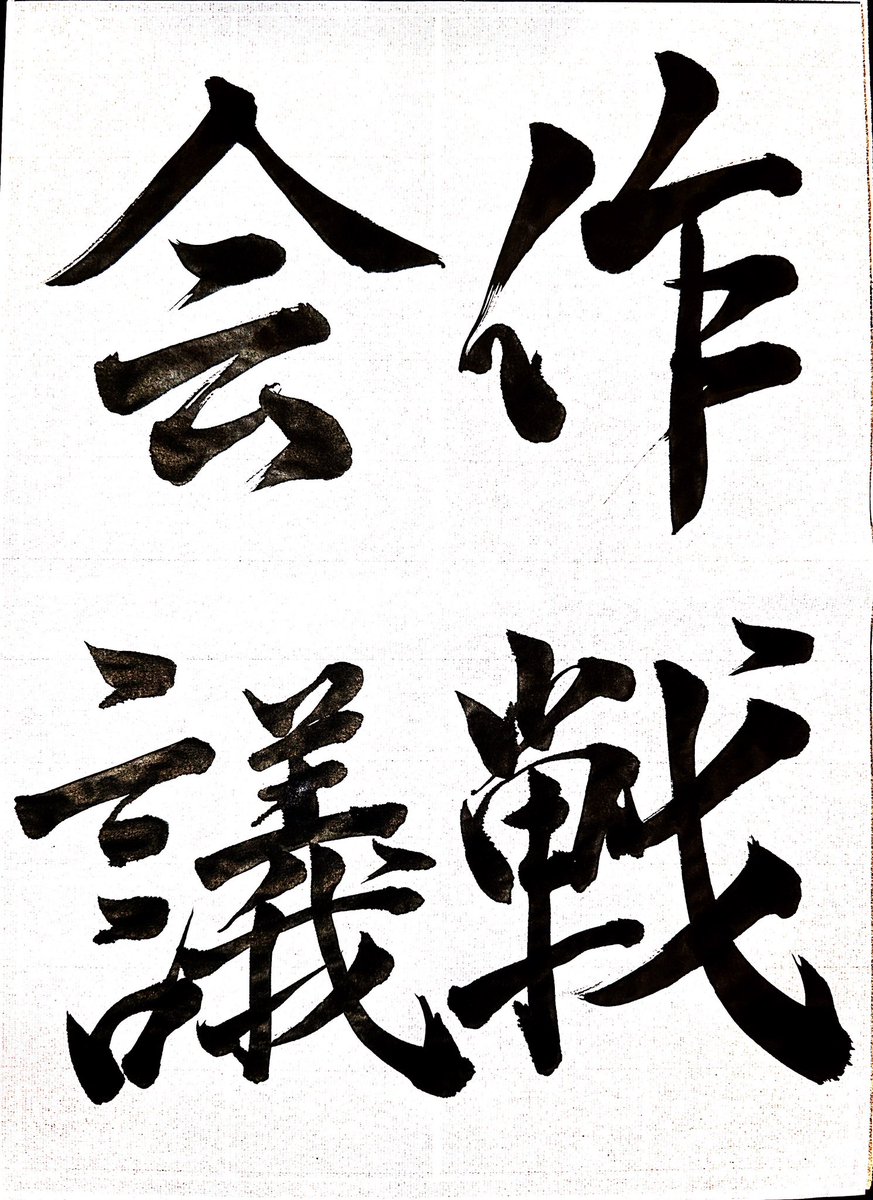 作戦
会議